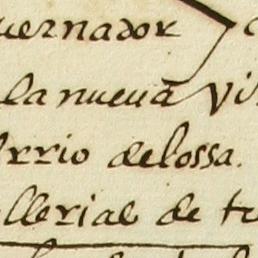 uernador
la nueua Vi
rrio delossa.
llerial de te